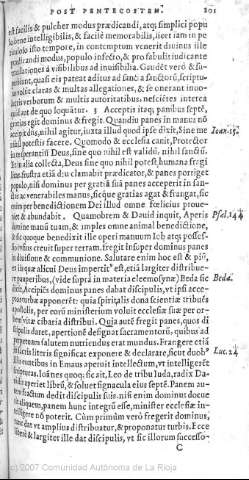 POST PENTECOSTEN. 201
est facilis & pulcher modus prædicandi, atq; simplici popu
lo intelligibilis, & facilè memorabilis, licet iam in
isto tempore, in contemptum venerit diuinus ille
prædicandi modus, populo infecto, & profabulis inanibus
à visibilibus ad inuisibilia. Gaudet verò &
quasi eis pateat aditus ad sanctorũ, scriptu
claras & multas allegationes, & se onerant
inuerborum & multis autoritatibus nescires interea
aut de quo loquatur. 5 Acceptis itaq; panibus septẽ,
gratias egit dominus & fregit. Quandiu panes in manu nõ
nihil agitur, iuxta illud quod ipse dixit, Sine me
potestis facere. Quomodo & ecclesia canit, Protector
in te sperantiũ Deus, sine quo nihil est validũ, nihil sanctũ.
collecta, Deus sine quo nihil potest humana fragi
frustra etiã diu clamabit prædicator, & panes porriget
populo, nisi dominus per gratiã suã panes acceperit in san
ac venerabiles manus, eisque gratias agat & frangat, sic
per benedictionem Dei illud omne fœlicius proue-
& abundabit. Quamobrem & Dauid inquit, Aperis
manũ tuam, & imples omne animal benedictione,
quoque benedixit ille operi manuum Iob atq; posses-
creuit super terram. fregit insuper dominus panes
diuisione & communione. Salutare enim hoc est & piũ,
Deus impertit' est, etiã largiter distribue-
pauperibus, (vide suprà in materia eleemosynæ) Beda sic
Accipiẽs dominus panes dabat discipulis, vt ipsi acce-
turbæ apponerẽt: quia spiritalis dona scientiæ tribuẽs
apostolis, per eorũ ministerium voluit ecclesiæ suæ per or-
cibaria distribui. Quia autẽ fregit panes, quos di
daret, apertionẽ designat sacramentorũ, quibus ad
salutem nutriendus erat mundus. Frangere etiã
literis significat exponere & declarare, sicut duob'
euntibus in Emaus aperuit intellectum, vt intelligerẽt
Ioan. 15.
Psal. 144
Beda.
Luc. 24
leo de tribu Iuda, radix Da-
aperiet librũ, & soluet signacula eius septẽ. Panem au-
fractum dedit discipulis suis. nisi enim dominus docue
panem hunc integrũ esse, minister ecclesiæ in-
nõ poterit. Cùm primùm verò fregerit dominus,
vt amplius distribuatur, & proponatur turbis. Ecce
& largiter ille dat discipulis, vt sic illorum successo-
C
(c) 2007 Comunidad Autónoma de La Rioja